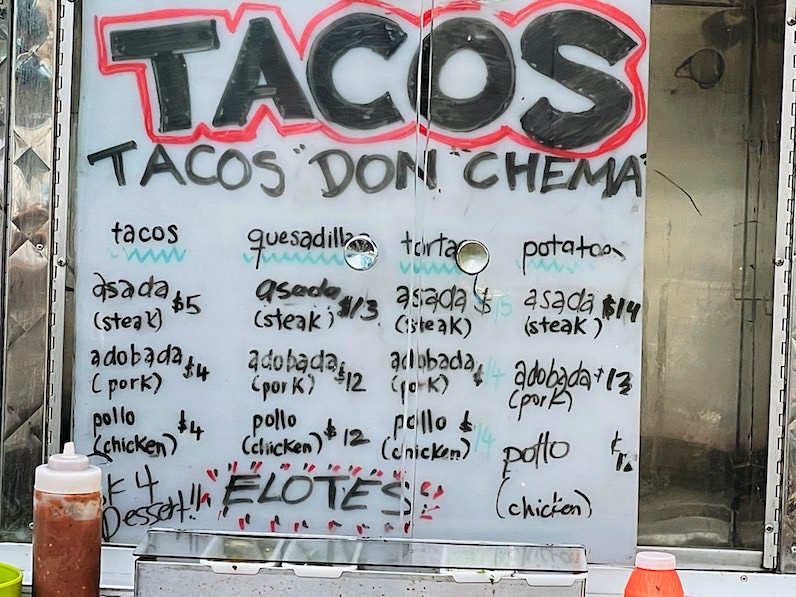 TACOS
TACOS "DON" CHEMA"
tacos
asada $5
(steak)
adobada $4
(pork)
pollo $4
(chicken)
quesadilla
asada $13
(steak)
adobada $12
(pork)
pollo
(chicken) $12
torta
asada $15
(steak)
adobada $14
(pork)
pollo $14
(chicken)
potatoe
asada $14
(steak)
adobada $13
(pork)
pollo
(chicken)
4
Dessert!!
ELOTES